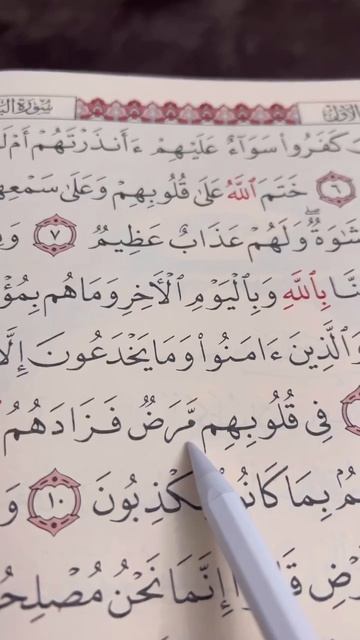 سُورَةُ
كَفَرُوا۟ سَوَآءٌ عَلَيْهِمْ ءَأَنذَرْتَهُمْ أَمْ
٦ خَتَمَ ٱللَّهُ عَلَىٰ قُلُوبِهِمْ وَعَلَىٰ سَمْعِهِ
وَلَهُمْ عَذَابٌ عَظِيمٌ ٧
بِٱللَّهِ وَبِٱلْيَوْمِ ٱلْأَخِرِ وَمَا هُم بِمُؤْ
وَٱلَّذِينَ ءَامَنُوا۟ وَمَا يَخْدَعُونَ إِلَّا
فِى قُلُوبِهِم مَّرَضٌ فَزَادَهُمُ
بِمَا كَانُ يَكْذِبُونَ ١٠
إِنَّمَا نَحْنُ مُصْلِحُ